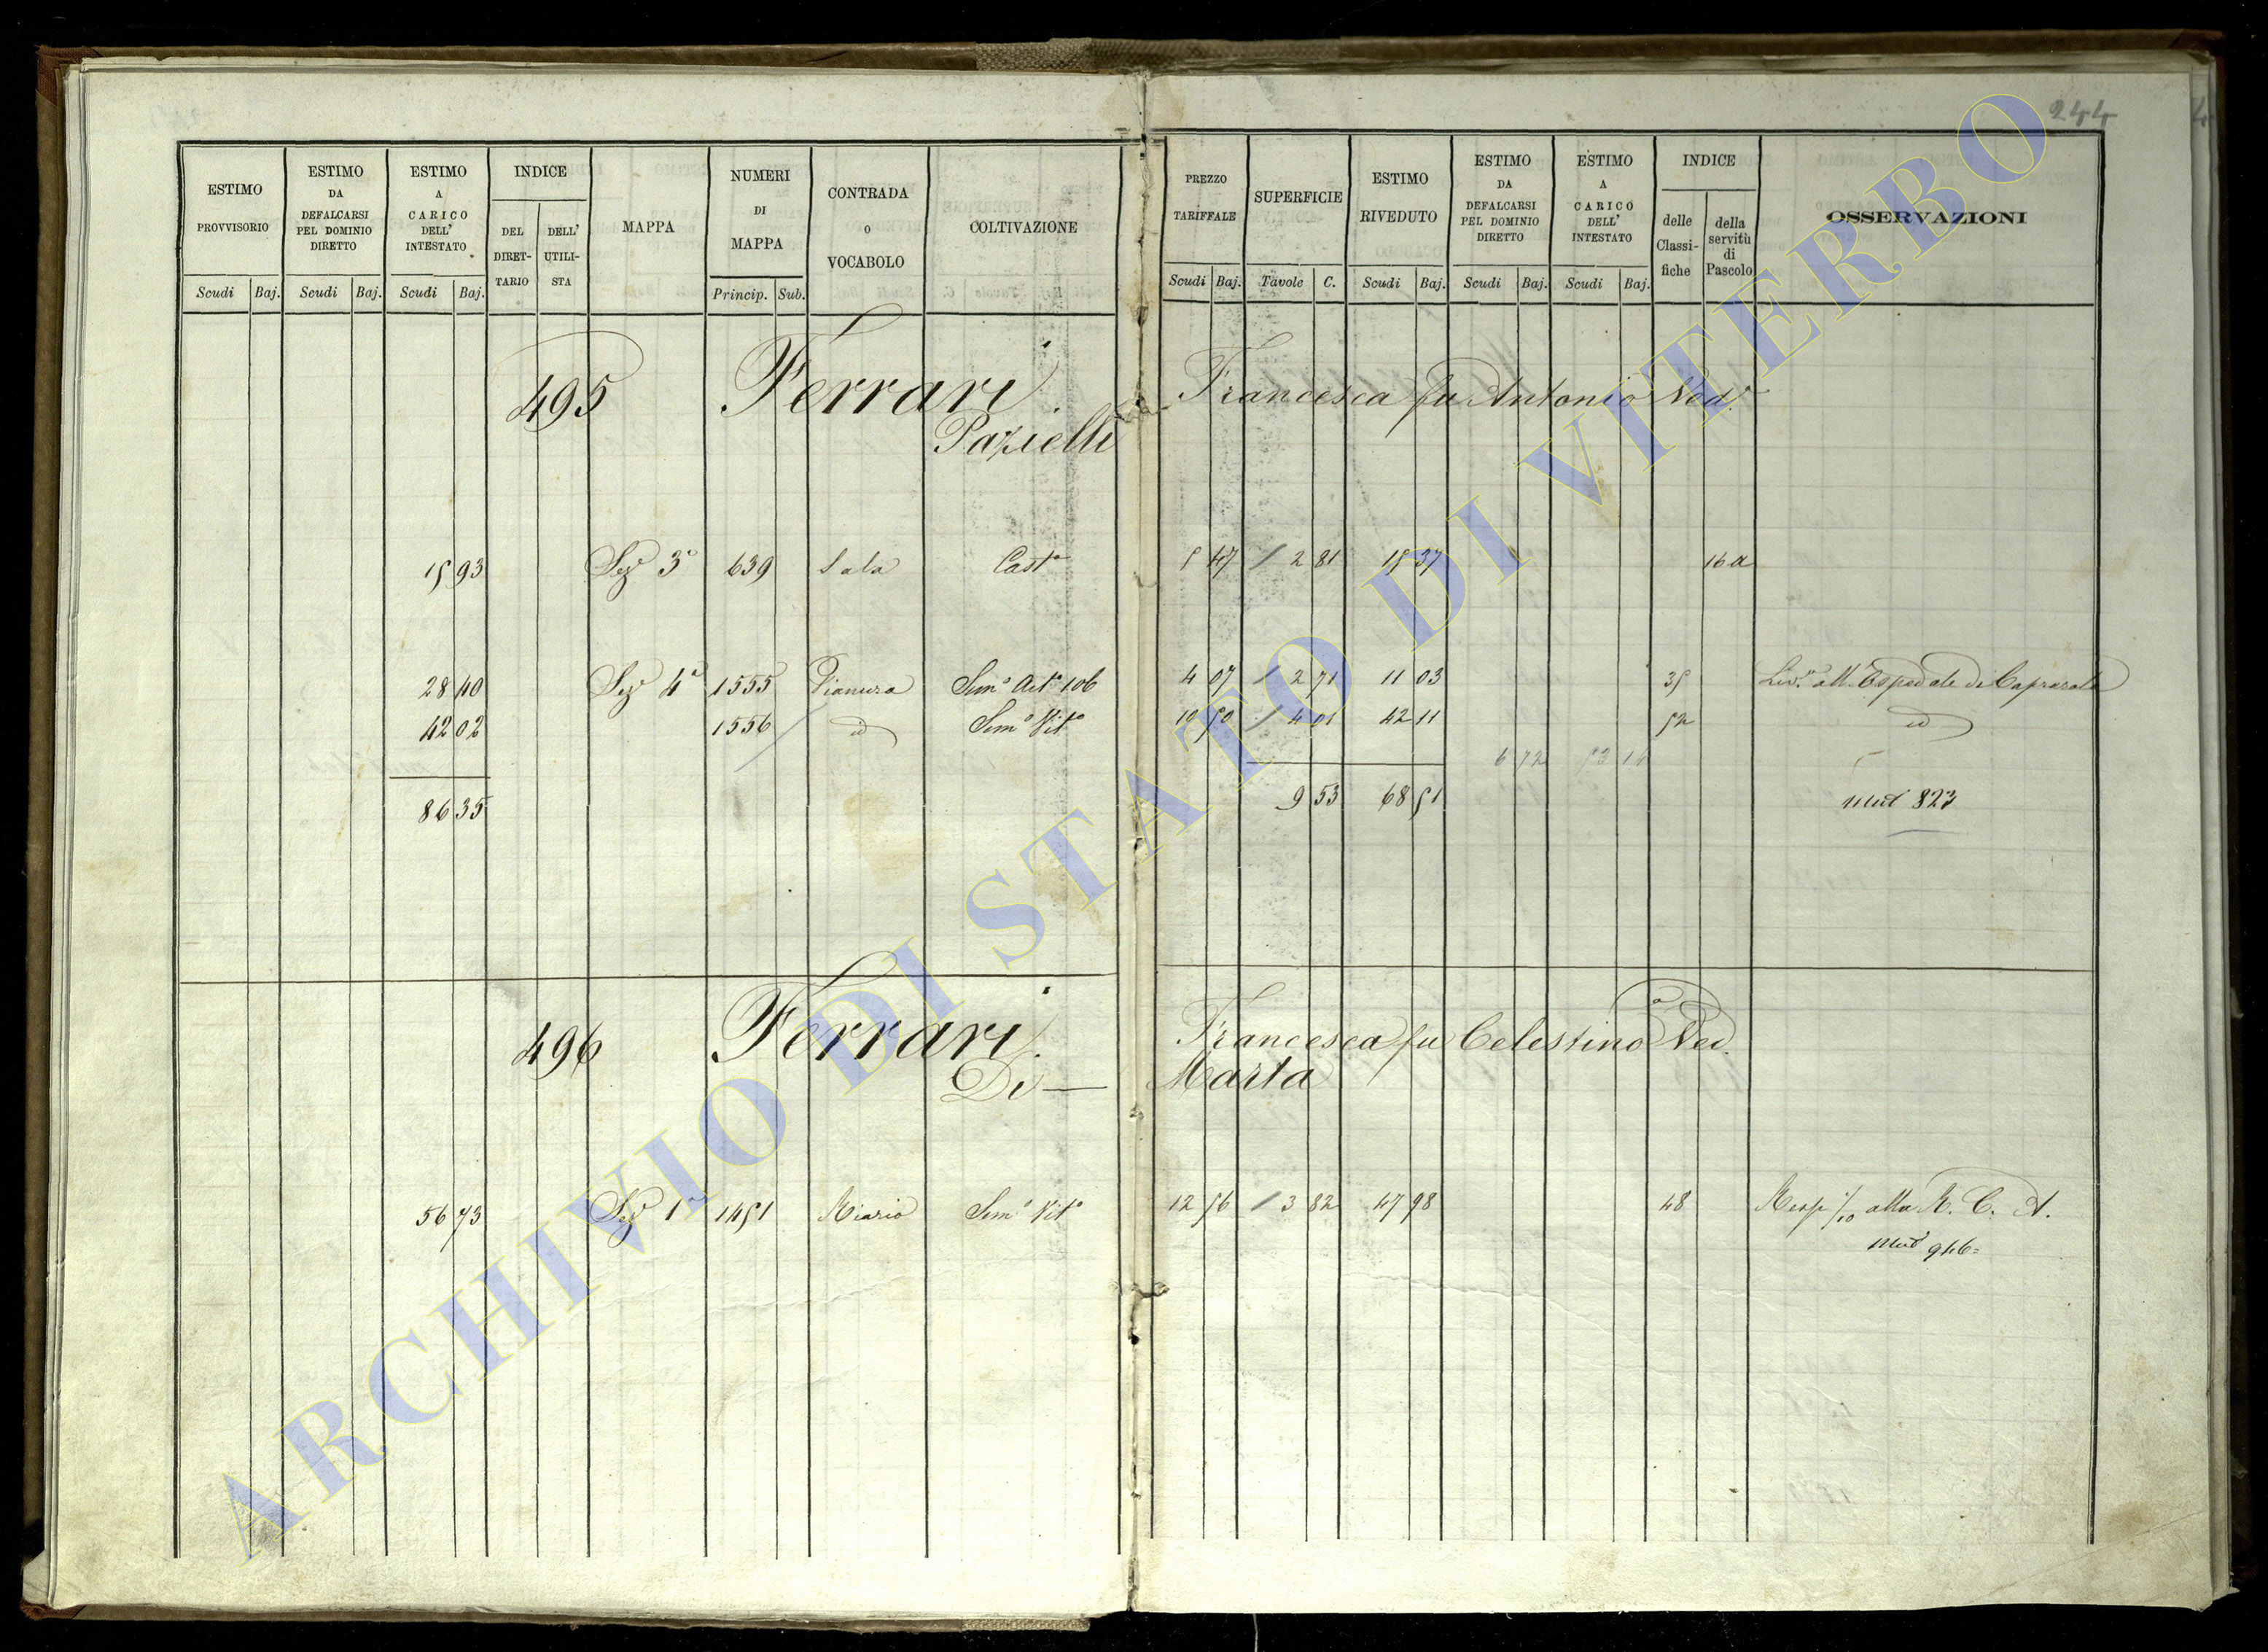 244
ESTIMO PROVVISORIO Scudi Baj.
ESTIMO DA DEFALCARSI PEL DOMINIO DIRETTO Scudi Baj.
ESTIMO A CARICO DELL' INTESTATO Scudi Baj.
INDICE DEL DIRET-TARIO DELL' UTILI-STA
MAPPA
NUMERI DI MAPPA Princip. Sub.
CONTRADA O VOCABOLO
COLTIVAZIONE
PREZZO TARIFFALE Scudi Baj.
SUPERFICIE Tavole C.
ESTIMO RIVEDUTO Scudi Baj.
ESTIMO DA DEFALCARSI PEL DOMINIO DIRETTO Scudi Baj.
ESTIMO A CARICO DELL' INTESTATO Scudi Baj.
INDICE delle Classi-fiche della servitù di Pascolo
OSSERVAZIONI
495 Ferrari Francesca fu Antonio Ved.
Pazielli
15 93 Sez. 3a 639 Sala Casto 5 47 / 2 81 15 37 16 a
28 40 Sez. 4a 1555 Pianura Semo Arto 106 4 07 / 2 71 11 03 35 Livo all'Ospedale di Caprarola
42 02 1556 id Semo Vito 10 50 / 4 01 42 11 52 id
6 72 53 14
86 35 9 53 68 51 Mut 823
496 Ferrari Francesca fu Celestino Ved.a
Di — Marta
56 73 Sez. 1a 1451 Riario Semo Vito 12 56 / 3 82 47 98 48 Risp 1/10 alla R. C. A.
Mut 946=
ARCHIVIO DI STATO DI VITERBO